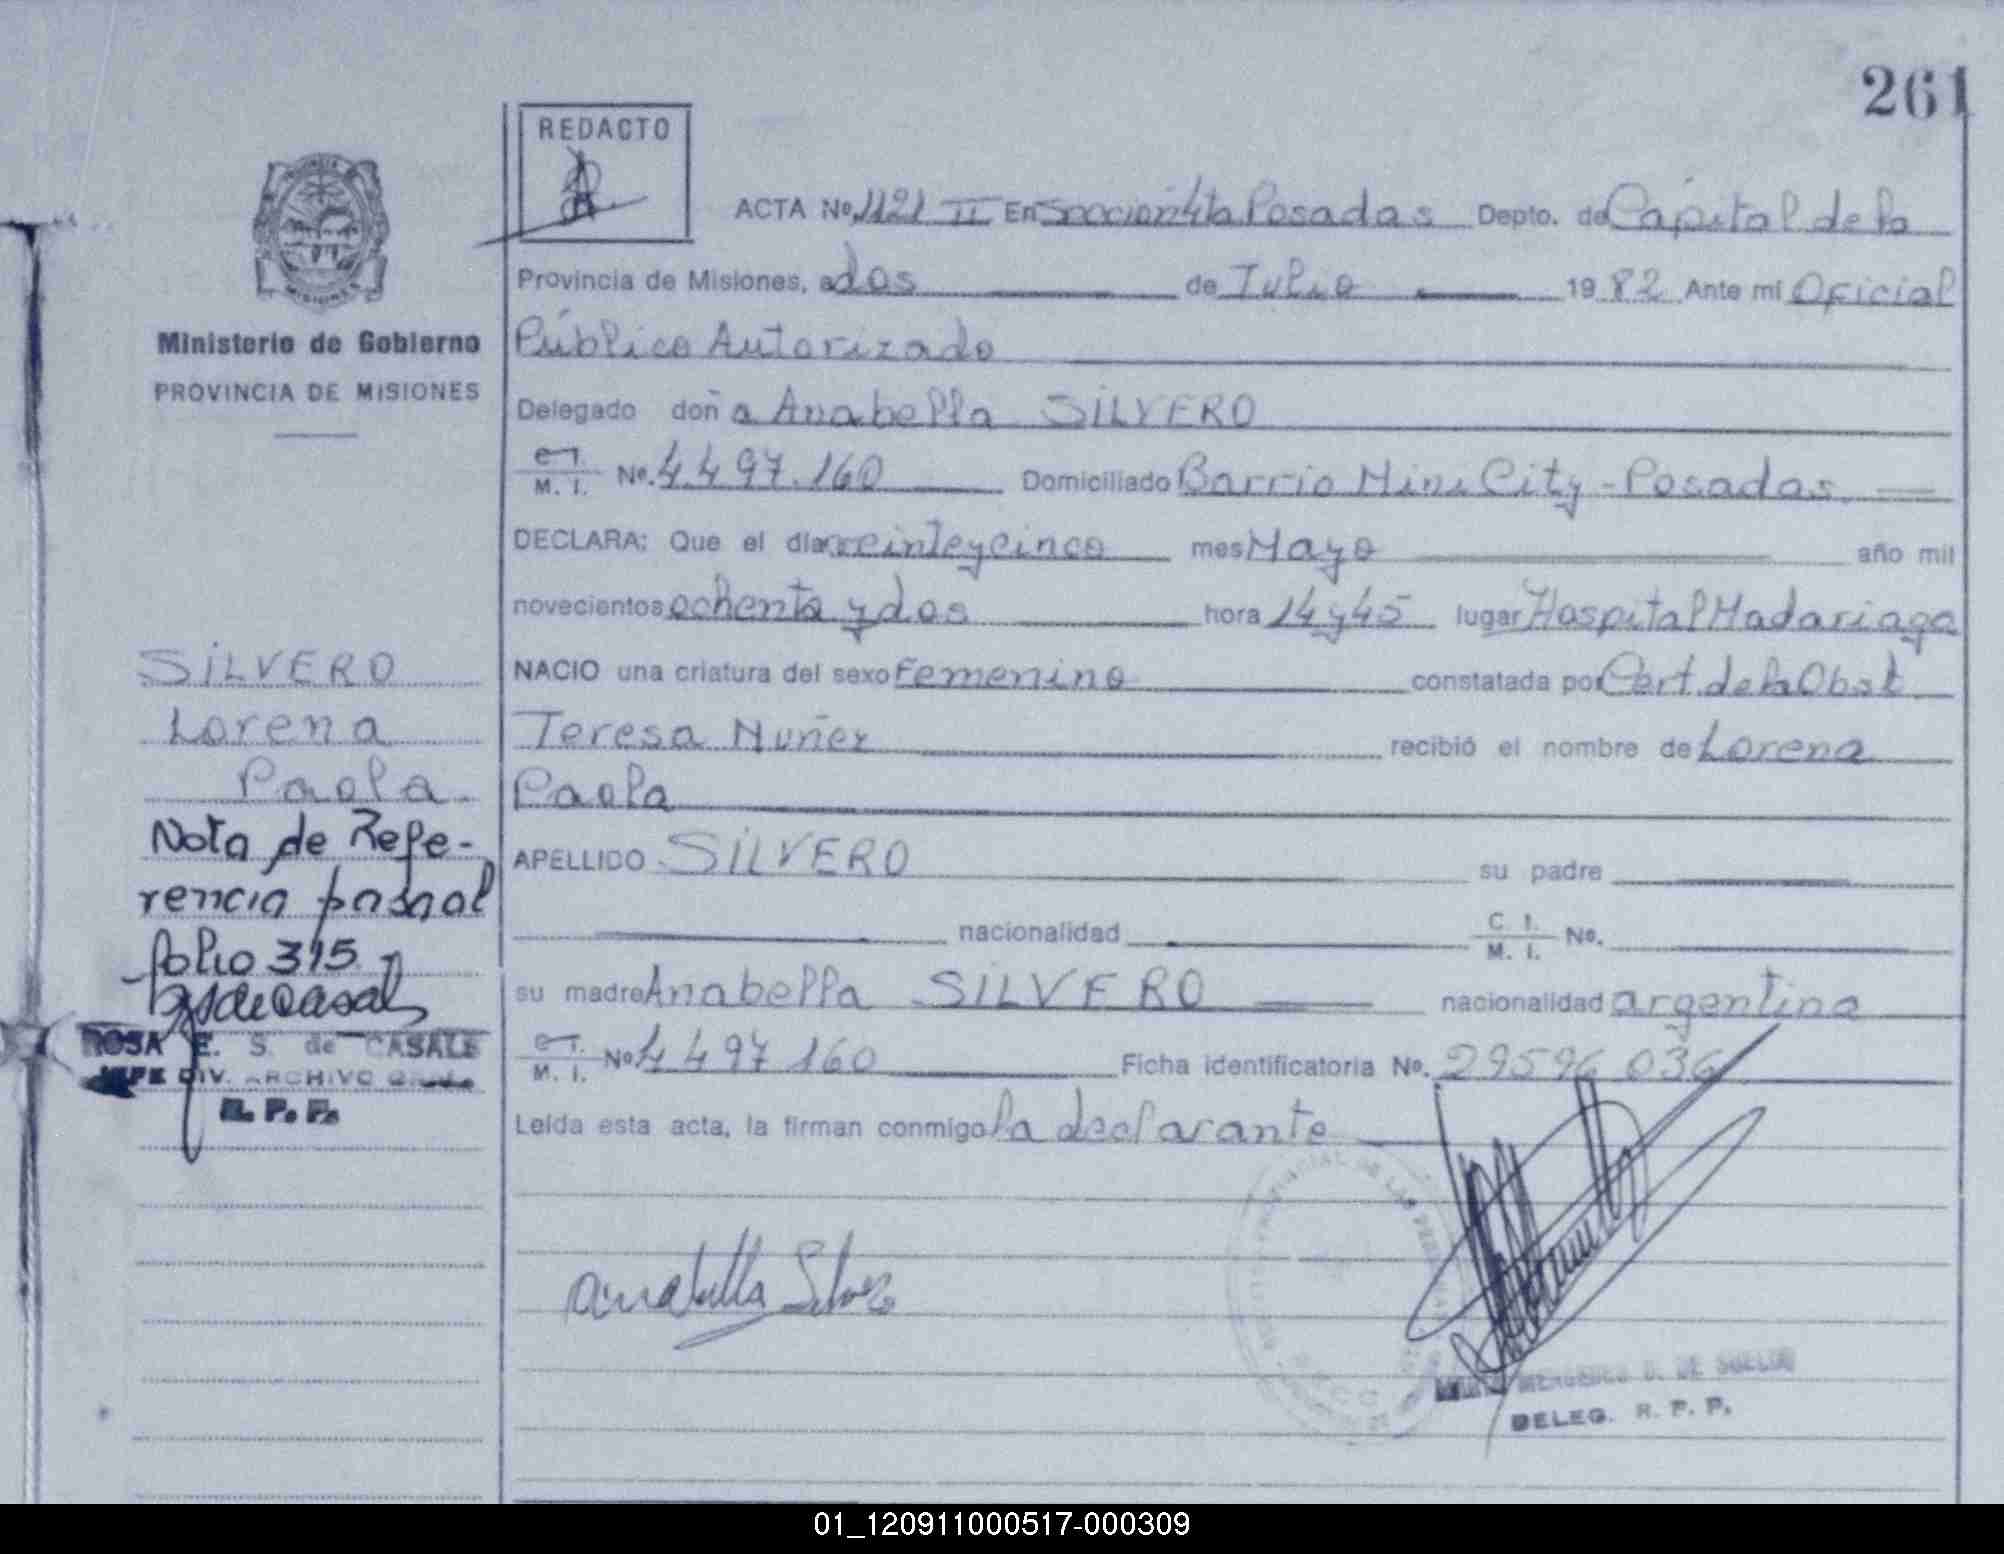 261
REDACTO
ACTA Nº 1121 II En Sección 4ta Posadas Depto. de Capital de la
Provincia de Misiones, a dos de Julio 1982 Ante mi Oficial
Ministerio de Gobierno
Público Autorizado
PROVINCIA DE MISIONES
Delegado doña Anabella SILVERO
M. I. Nº. 4.497.160 Domiciliado Barrio Mini City - Posadas
DECLARA: Que el día veinteycinco mes Mayo año mil
novecientos ochenta y dos hora 14 y 45 lugar Hospital Madariaga
SILVERO
NACIO una criatura del sexo Femenino constatada por Cert. de la Obst
Lorena
Teresa Nuñez recibió el nombre de Lorena
Paola
Paola
Nota de Refe-
APELLIDO SILVERO su padre
rencia
nacionalidad C I. M. I. Nº.
folio 315
su madre Anabella SILVERO nacionalidad argentina
ROSA E. S. de CASALE
M. I. Nº 4.497.160 Ficha identificatoria Nº. 29596036
JEFE DIV. ARCHIVO GRAL.
R. P. P.
Leída esta acta, la firman conmigo la declarante
Anabella Silvero
DE SUELDO
DELEG. R. P. P.
01_120911000517-000309